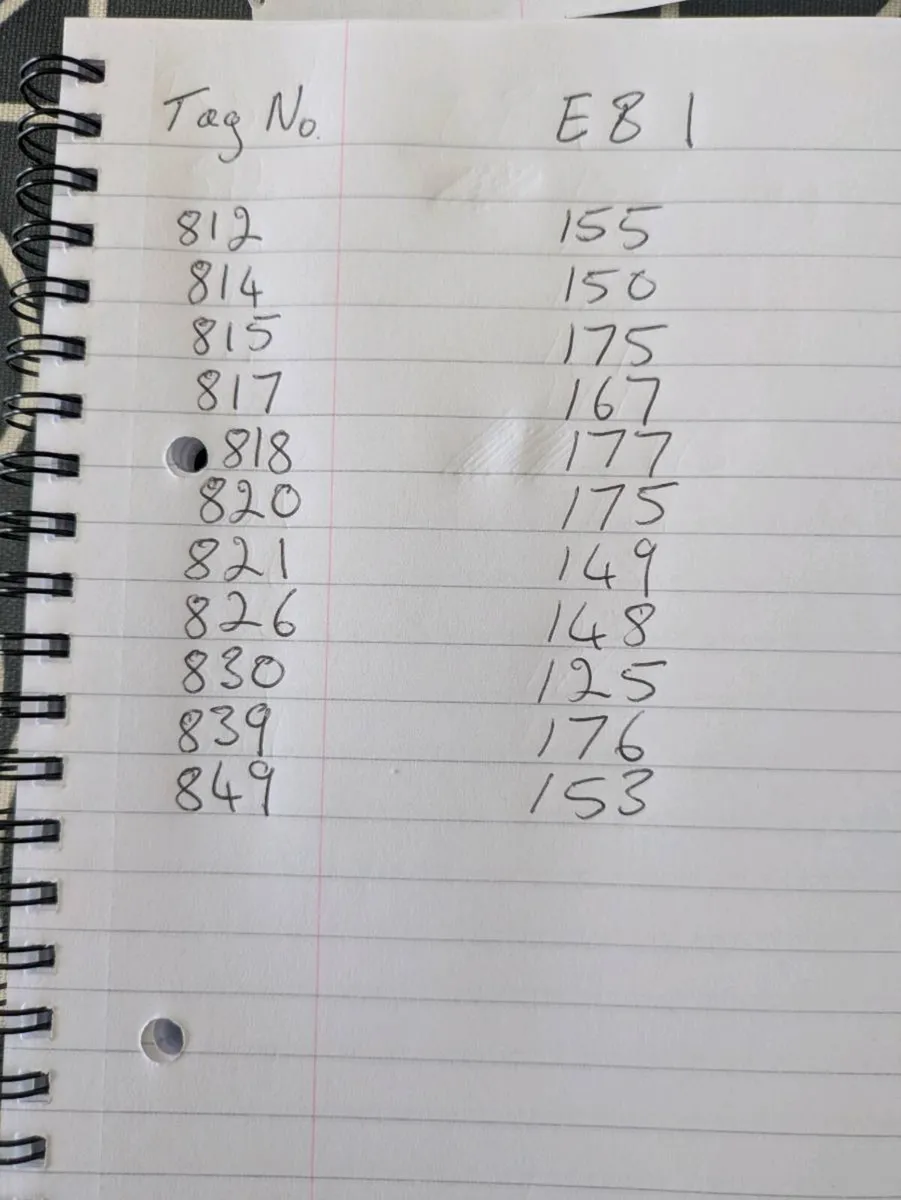 Tag No. E81
812 155
814 150
815 175
817 167
818 177
820 175
821 149
826 148
830 125
839 176
849 153